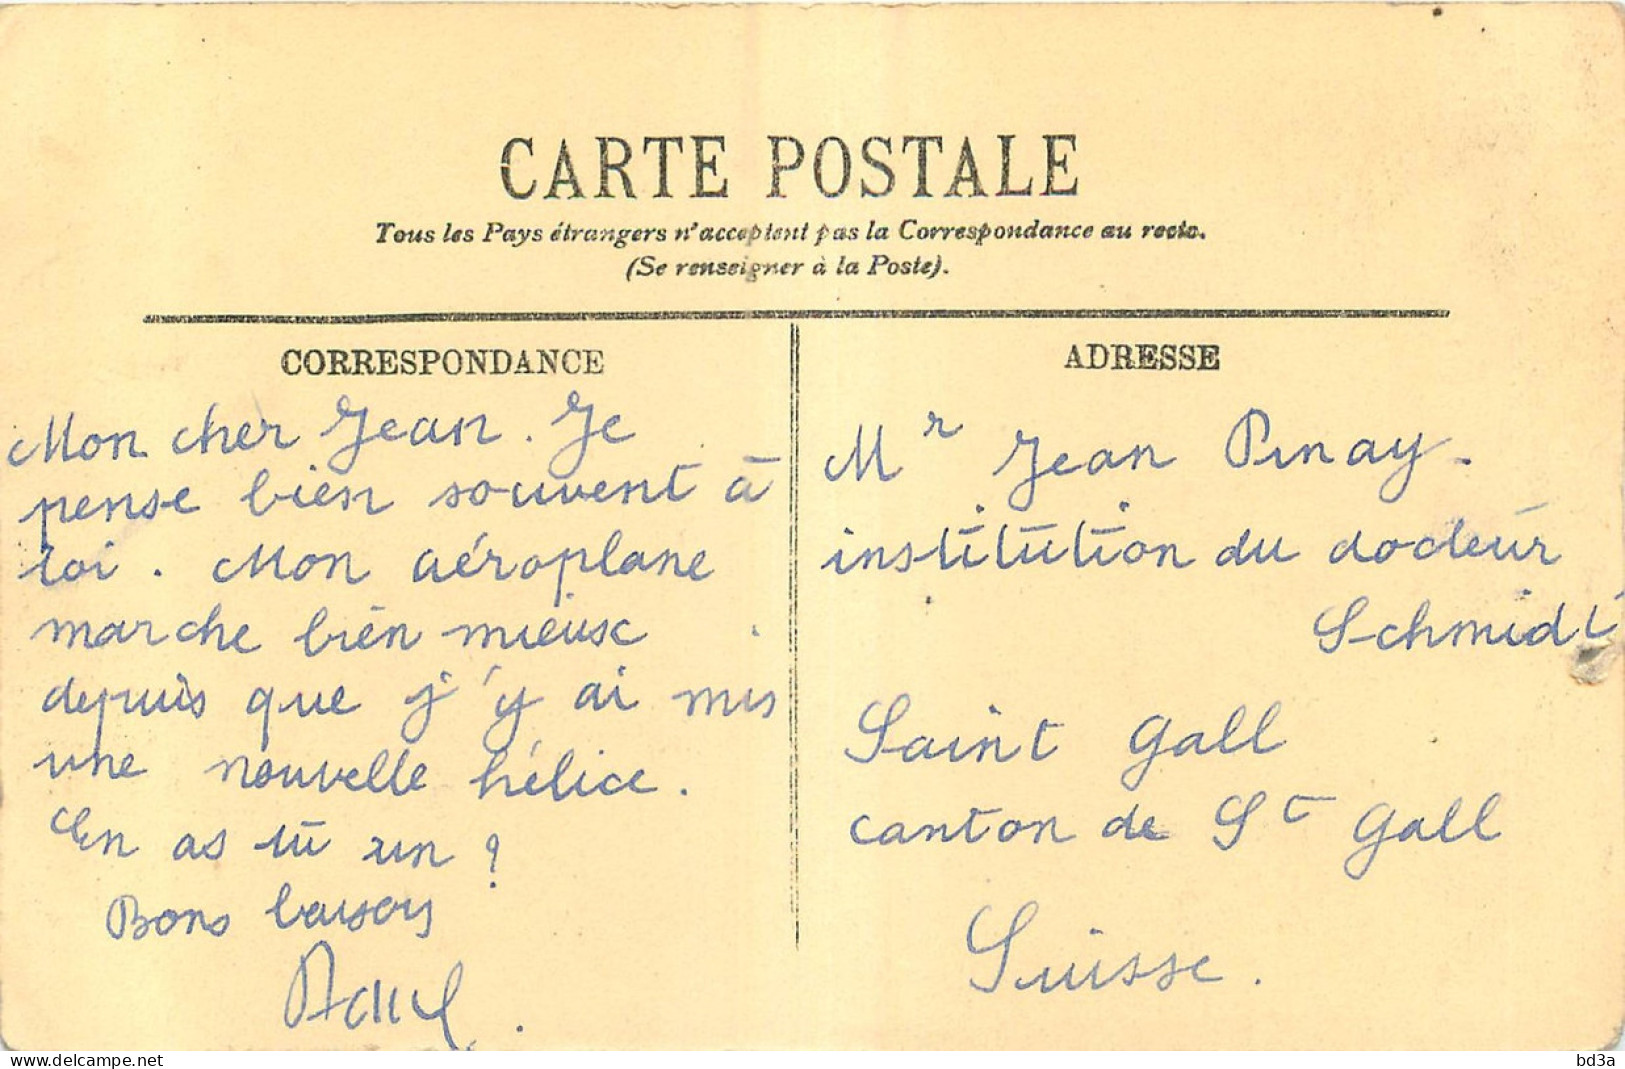 CARTE POSTALE
Tous les Pays étrangers n'acceptent pas la Correspondance au recto.
(Se renseigner à la Poste).
CORRESPONDANCE
Mon cher Jean. Je
pense bien souvent à
toi. Mon aéroplane
marche bien mieux
depuis que j'y ai mis
une nouvelle hélice.
En as tu un ?
Bons baisers
ADRESSE
Mr Jean Pinay.
institution du docteur
Schmidt
Saint Gall
canton de St Gall
Suisse.
delcampe.net
bd3a